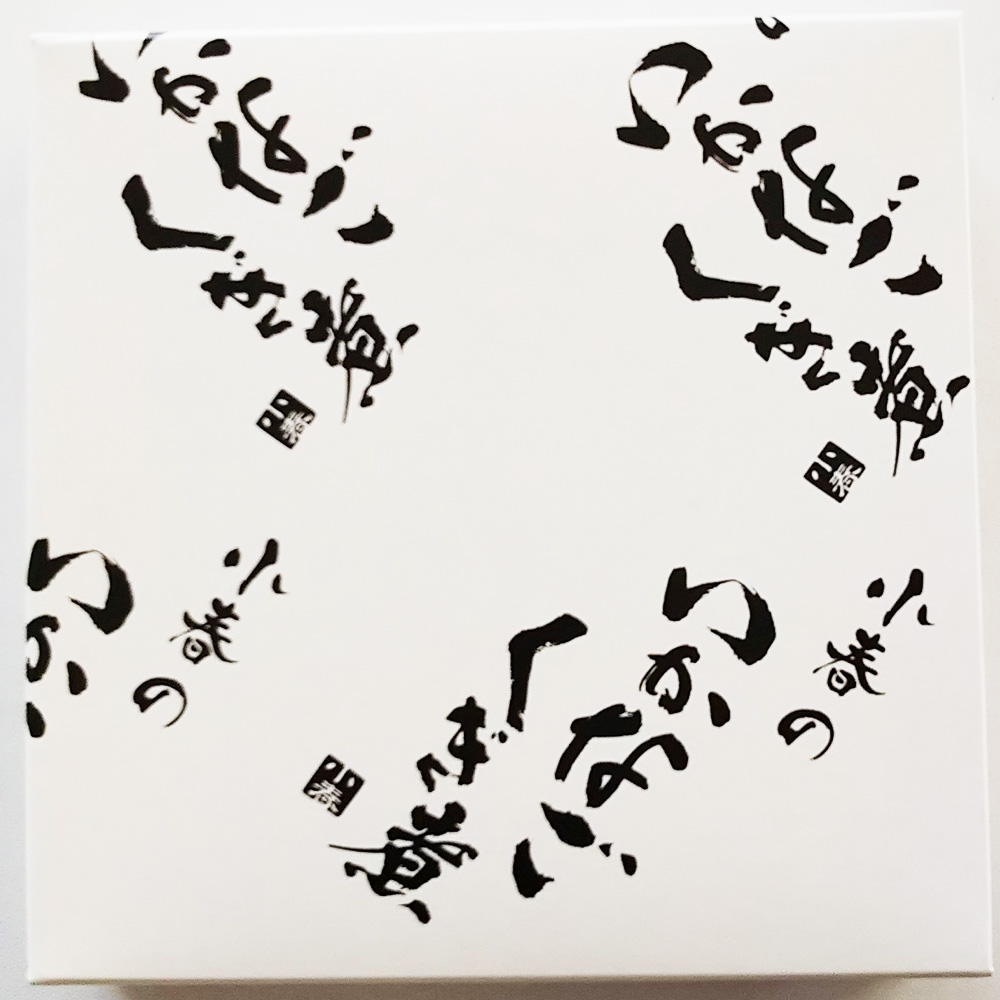 いかなご
くぎ煮
小春
いかなご
くぎ煮
小春
小春の
いか
小春の
いかなご
くぎ煮
小春